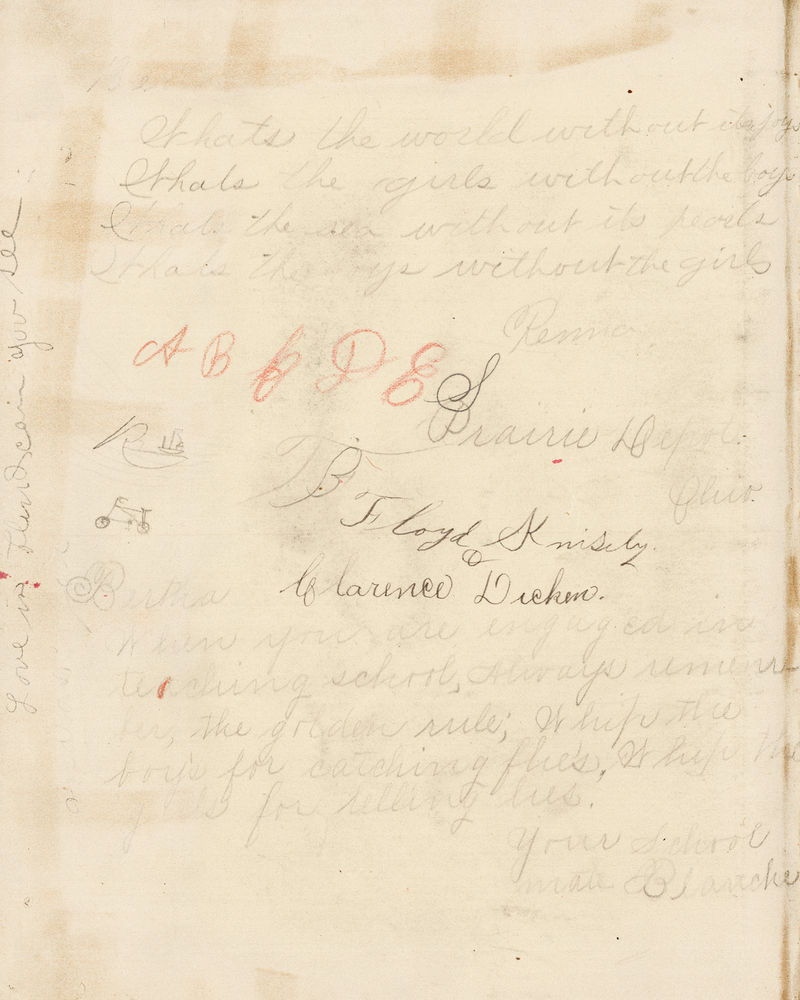 Whats the world without its joys
Whats the girls without the boys
Whats the sea without its pearls
Whats the boys without the girls
A B C D E S
Prairie Depot.
Ohio.
B
Floyd Knisely.
Clarence Dicken.
Bertha
When you are engaged in
teaching school, Always remem
ber, the golden rule; Whip the
boys for catching flies, Whip the
girls for telling lies.
Your School
mate Blanche
Love in
can you see